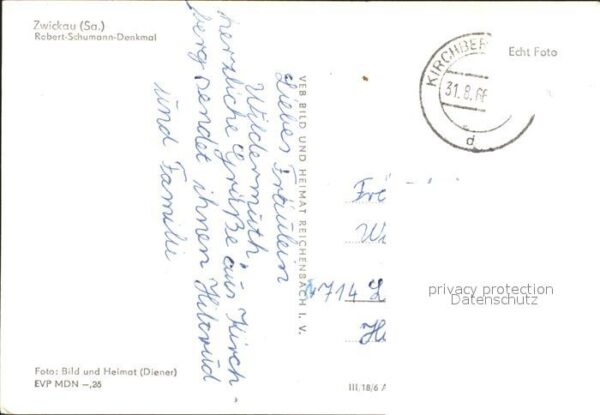 Zwickau (Sa.)
Robert-Schumann-Denkmal
Echt Foto
KIRCHBER
31.8.66
d
VEB BILD UND HEIMAT REICHENBACH I. V.
Liebes Fräulein
Wildermuth,
herzliche Grüße aus Kirch-
berg sendet ihnen
und Familie.
Frä
714
privacy protection
Datenschutz
Foto: Bild und Heimat (Diener)
EVP MDN –,25
III/18/6 A